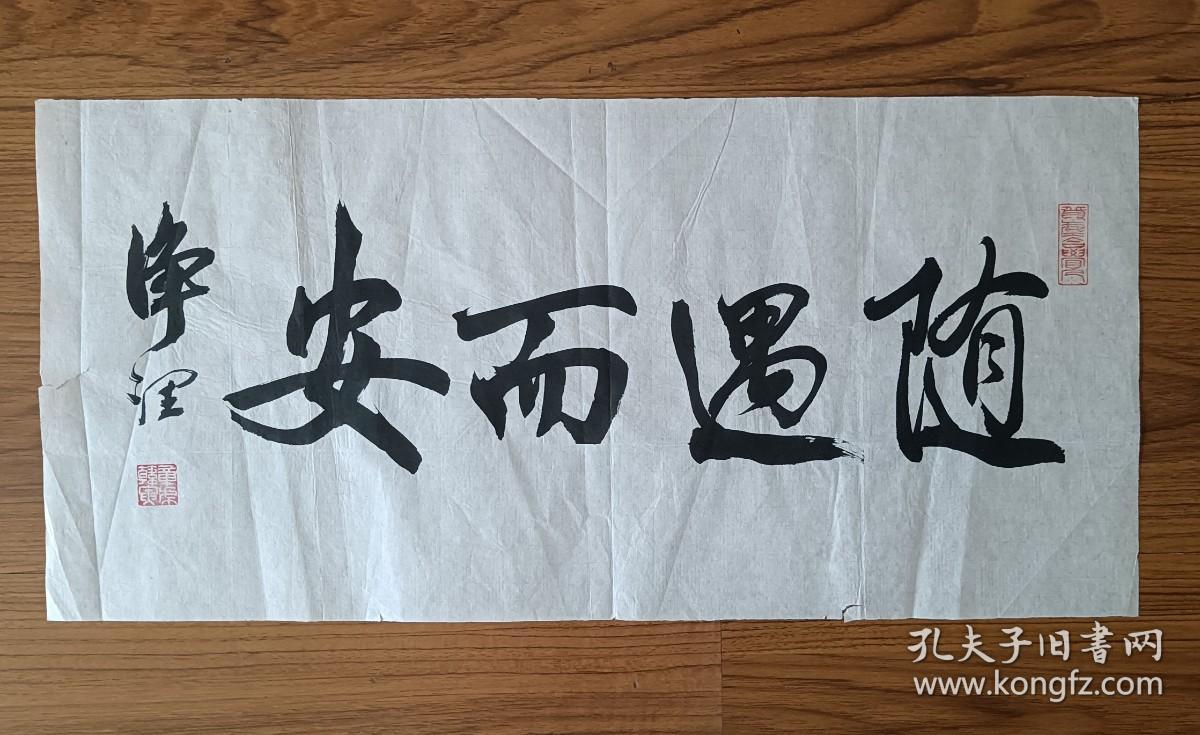 随遇而安
净理
孔夫子旧書网
www.kongfz.com